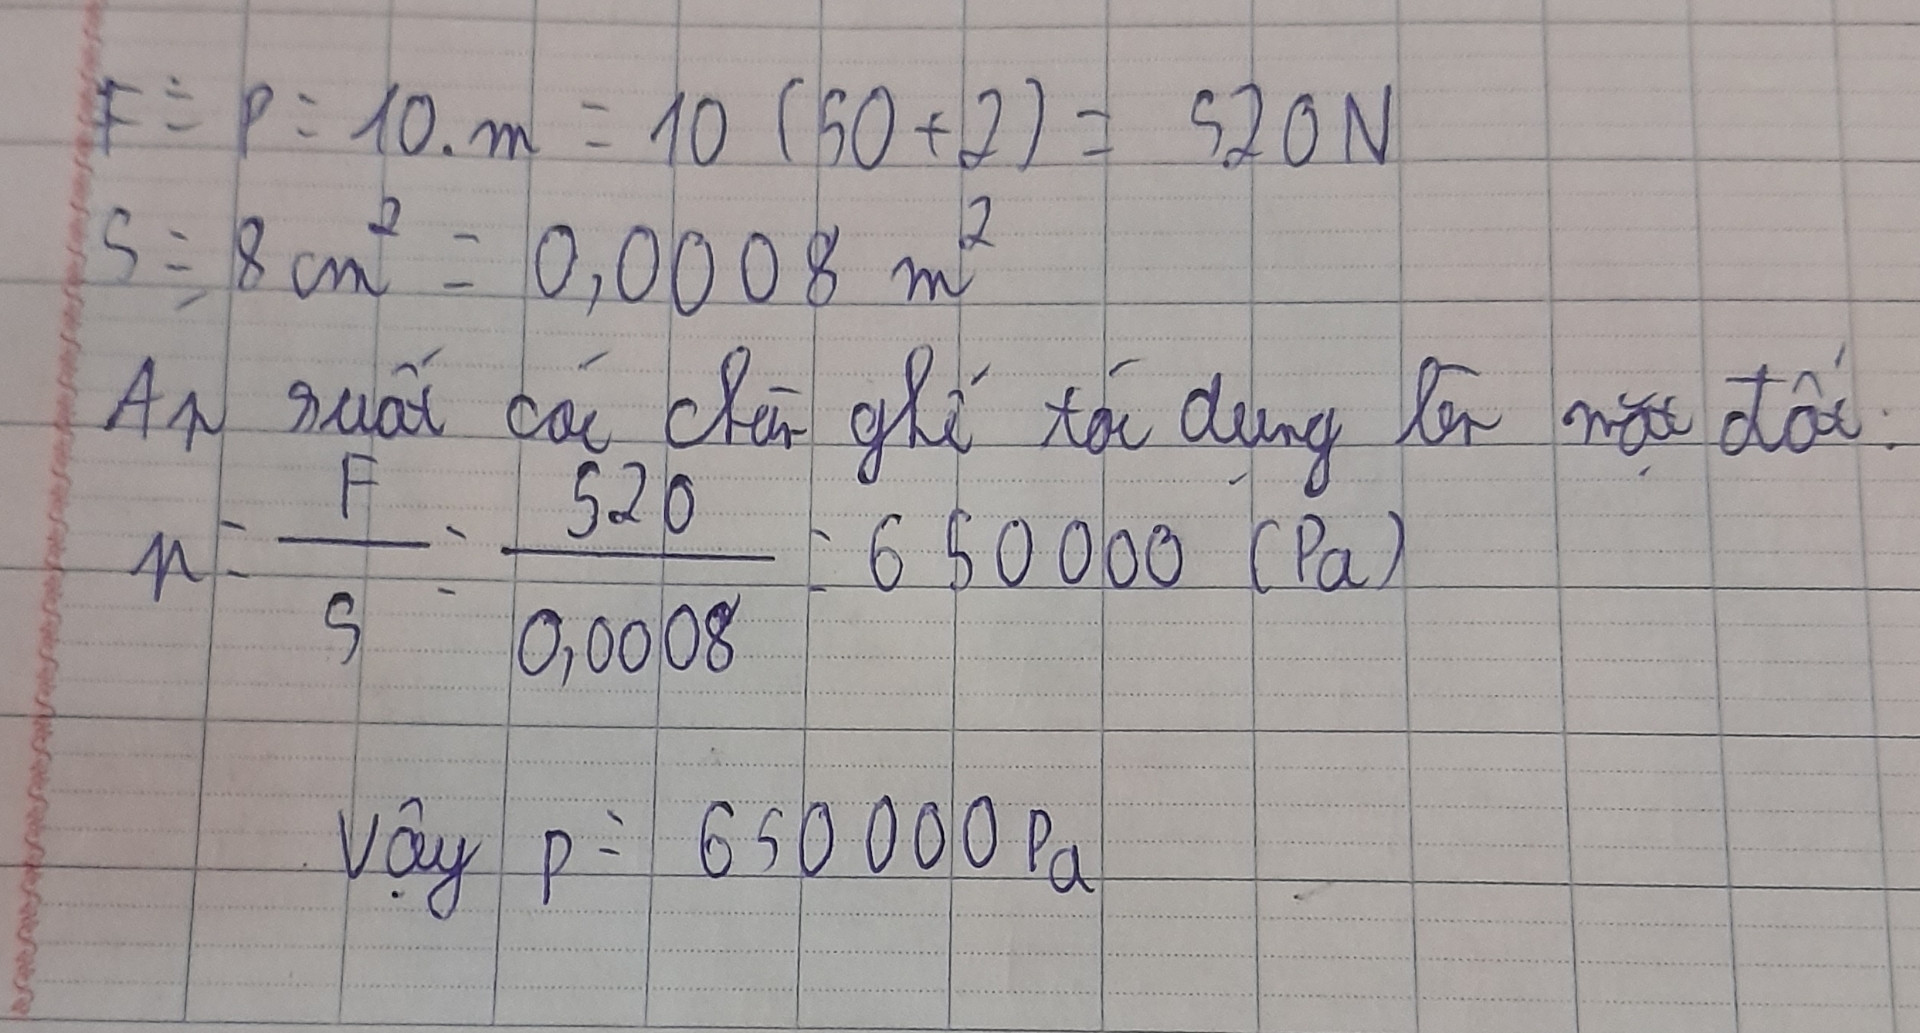 F = P = 10.m = 10 (50+2) = 520N
S = 8 cm² = 0,0008 m²
Áp suất các chân ghế tác dụng lên mặt đất:
p = F/S = 520/0,0008 = 650000 (Pa)
Vậy p = 650000 Pa